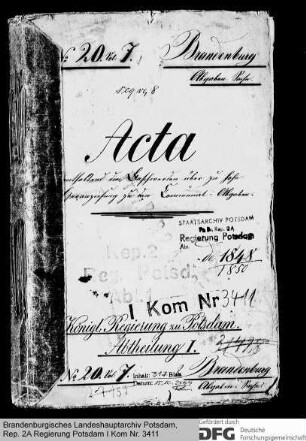 No 20. lit 7. Brandenburg
Abgaben Sache.
Acta
enthaltend die Beschwerden über zu hohe
Heranziehung zu den Communal-Abgaben.
STAATSARCHIV POTSDAM
Pr. Br. Rep. 2A
Regierung Potsdam
Abt.
de 1848
1850
Rep. 2
Reg. Potsd.
Abt. I
I Kom Nr 3411
Königl. Regierung zu Potsdam.
Abtheilung I.
No 20. lit 7. Brandenburg
Inhalt: Blatt
Datum:
Brandenburgisches Landeshauptarchiv Potsdam,
Rep. 2A Regierung Potsdam I Kom Nr. 3411
Gefördert durch
DFG Deutsche
Forschungsgemeinschaft